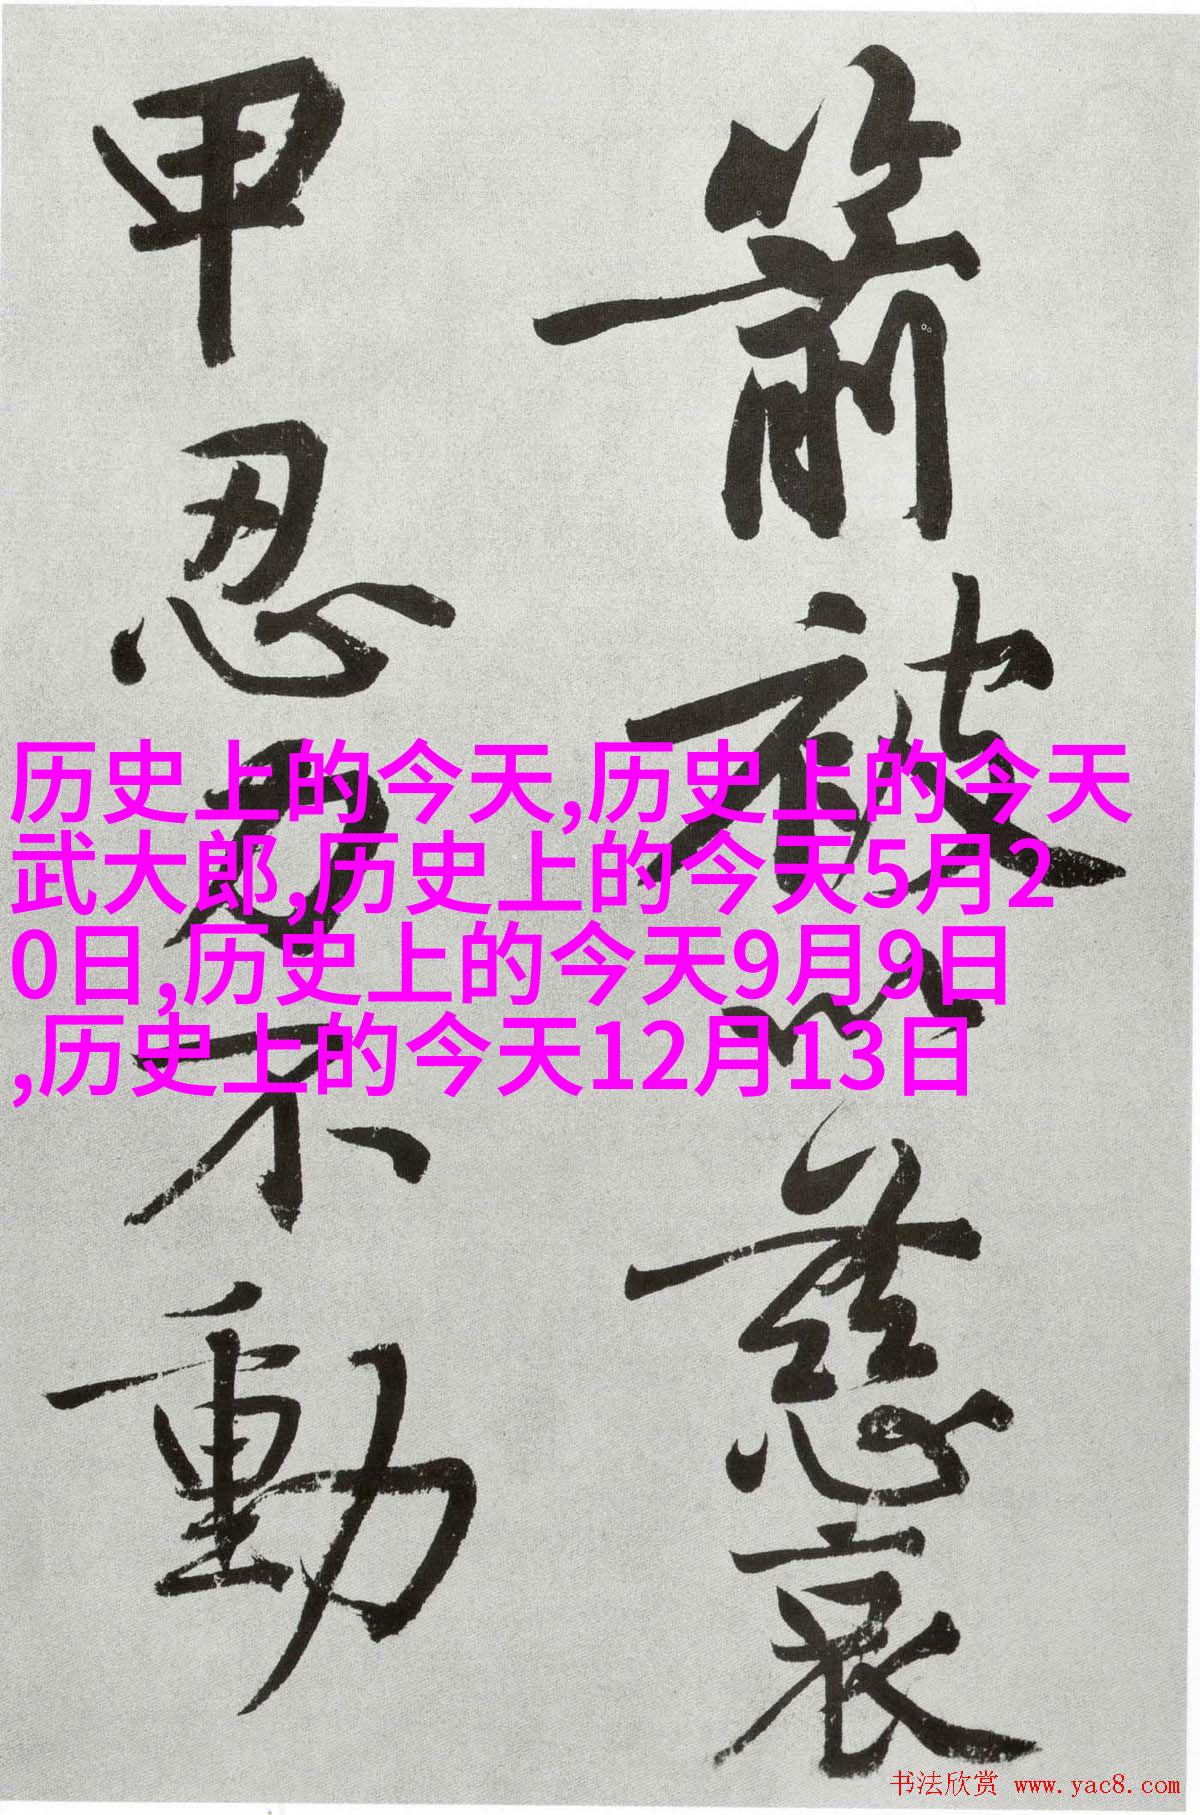 箭被以慈哀
甲忍不動
历史上的今天,历史上的今天
武大郎,历史上的今天5月2
0日,历史上的今天9月9日
,历史上的今天12月13日
书法欣赏 www.yac8.com